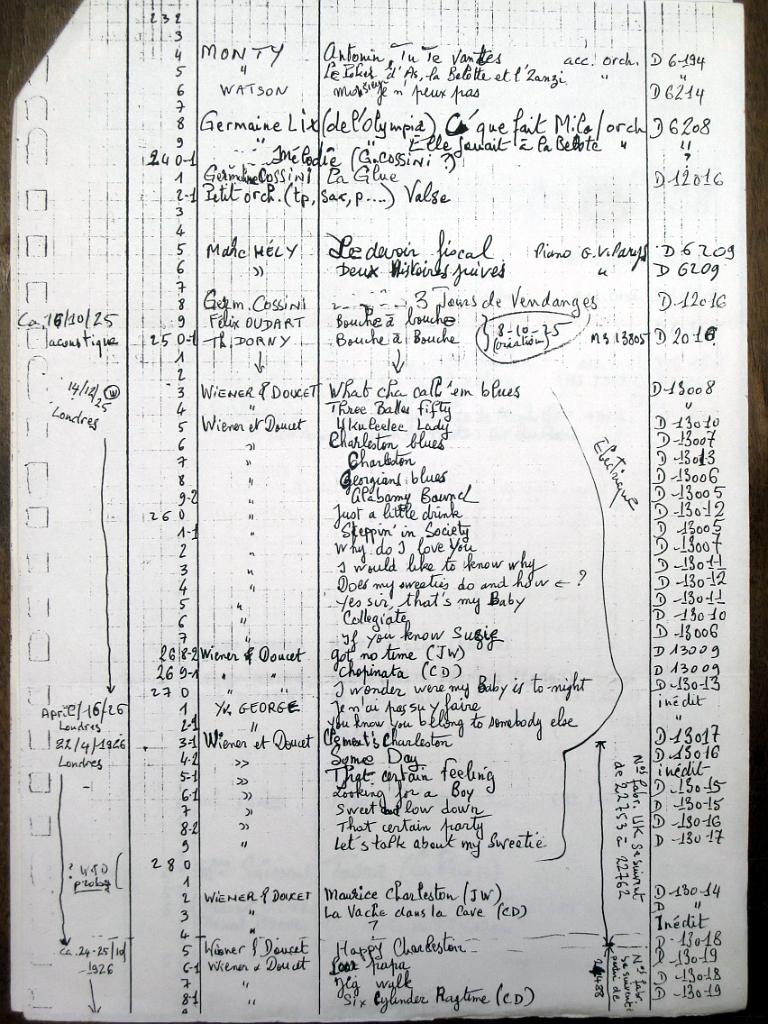 232
3
4 MONTY Antonin, Tu Te Vantes acc. orch. D 6194
5 " Le Poker d'As, la Belotte et l'Zanzi " "
6 WATSON Monsieur je n'peux pas D 6214
7
8 Germaine Lix (de l'Olympia) Ce que fait Milo / orch D 6208
9 " " Elle jouait à la Belote " "
240-1 Mélodie (G. COSSINI ?) ?
1 Germaine COSSINI La Glue D-12016
2-1 Petit orch. (tp, sax, p....) Valse
3
4
5 Marc HÉLY Le devoir fiscal Piano G.V. Parys D 6209
6 " Deux Histoires juives " D 6209
7
8 Germ. COSSINI 3 Jours de Vendanges D-12016
Ca. 16/10/25 9 Félix OUDART Bouche à bouche 8-10-25
acoustique 250-1 Th. DORNY Bouche à Bouche (création) M3 13805 D 2016
1
2
14/12/25 3 WIENER & DOUCET What cha call 'em blues D-13008
Londres 4 " Three Balles Fifty "
5 Wiener et Doucet Ukuleelec Lady D-13010
6 " Charleston blues D-13007
7 " Charleston D-13013
8 " Georgians blues D-13006
9-2 " Alabamy Bound D-13005
260 " Just a little drink D-13012
Electrique
1-1 " Steppin' in Society D 13005
2 " Why do I love You D-13007
3 " I would like to know why D-13011
4 " Does my sweeties do and how ← ? D-13012
5 " Yes sir, that's my Baby D-13011
6 " Collegiate D-13010
7 " If you know Suzie D-13006
268-2 Wiener & Doucet got no time (JW) D 13009
269-1 " " Chopinata (CD) D 13009
270 " " I wonder were my Baby is to-night D-13013
April/16/26 1 Yv. GEORGE Je n'ai pas su y faire inédit
Londres 2-1 " You know you belong to somebody else "
22/4/1926 3-1 Wiener et Doucet Clement's Charleston D-13017
Londres 4-2 " Some Day D-13016
5-1 " That certain feeling inédit
6-1 " Looking for a Boy D-13015
7 " Sweet and low down D-13015
8-2 " That certain party D-13016
9 " Let's talk about my Sweetie D-13017
Nos fabr. UK se suivent
de 22753 à 22762
280
1
2 WIENER & DOUCET Maurice Charleston (JW) D-13014
3 " La Vache dans la Cave (CD) D "
4 " ? Inédit
ca. 24-25/10/ 5 Wiener & Doucet Happy Charleston D-13018
1926 6-1 Wiener & Doucet papa D-13019
7 " walk D-13018
8-1 " Six Cylinder Ragtime (CD) D-13019
Nos fabr.
se suivent